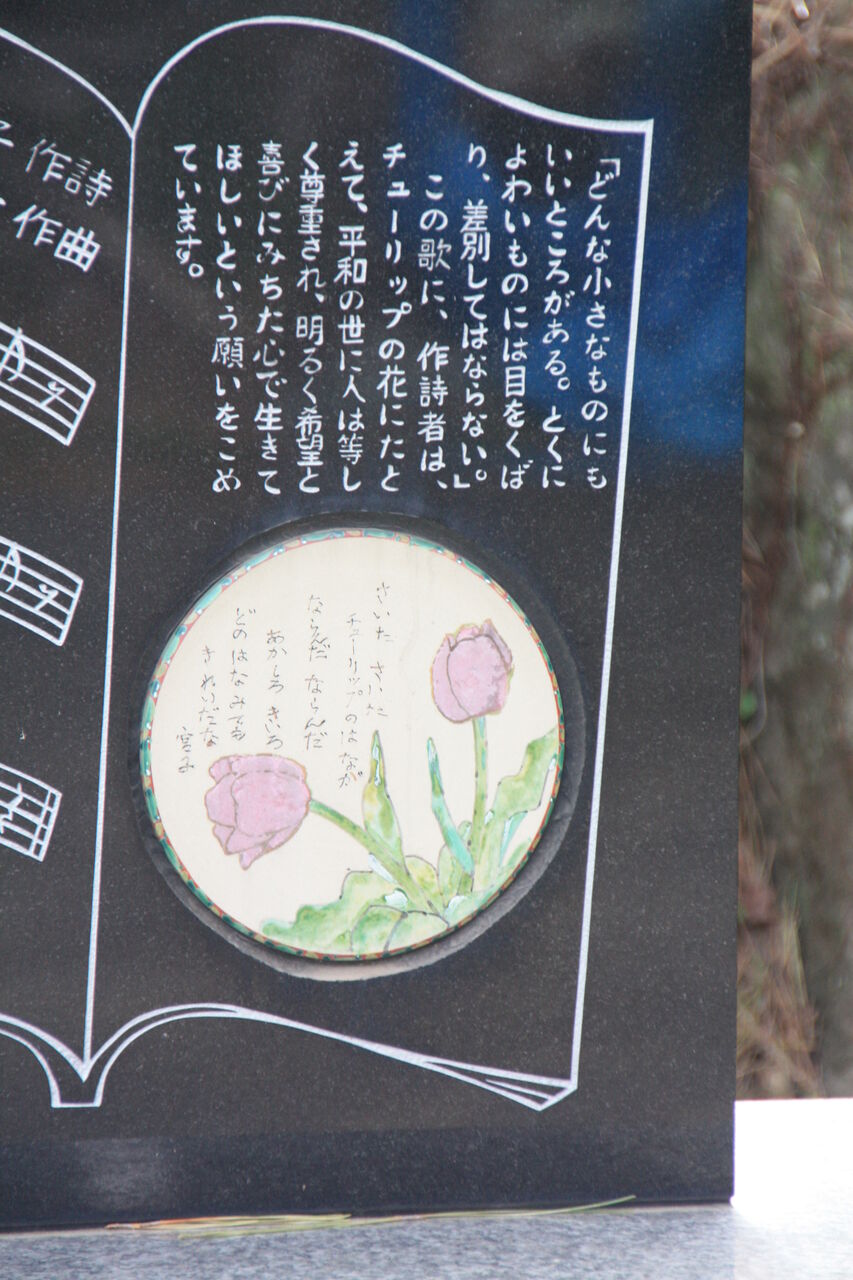 「どんな小さなものにも
いいところがある。とくに
よわいものには目をくば
り、差別してはならない。」
この歌に、作詩者は、
チューリップの花にたと
えて、平和の世に人は等し
く尊重され、明るく希望と
喜びにみちた心で生きて
ほしいという願いをこめ
ています。
作詩
作曲
さいた さいた
チューリップのはなが
ならんだ ならんだ
あかしろ きいろ
どのはなみても
きれいだな
宮子